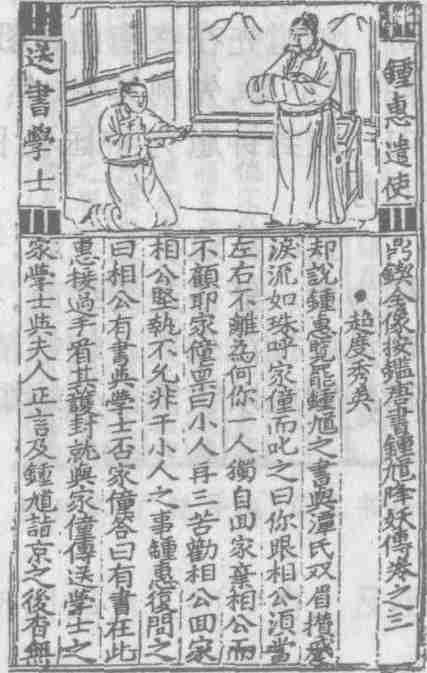 鍾惠遣使
送書學士
鼎鍥全像按鑑唐書鍾馗降妖傳卷之三
超度秀英
却說鍾惠覽罷鍾馗之書與潭氏双眉攢蹙
淚流如珠呼家僮而叱之曰你跟相公須當
左右不離為何你一人獨自回家棄相公而
不顧耶家僮禀曰小人再三苦勸相公回家
相公堅執不允非干小人之事鍾惠復問之
曰相公有書與學士否家僮答曰有書在此
惠接過手看其護封就與家僮傳送學士之
家學士與夫人正言及鍾馗詣京之後杳無